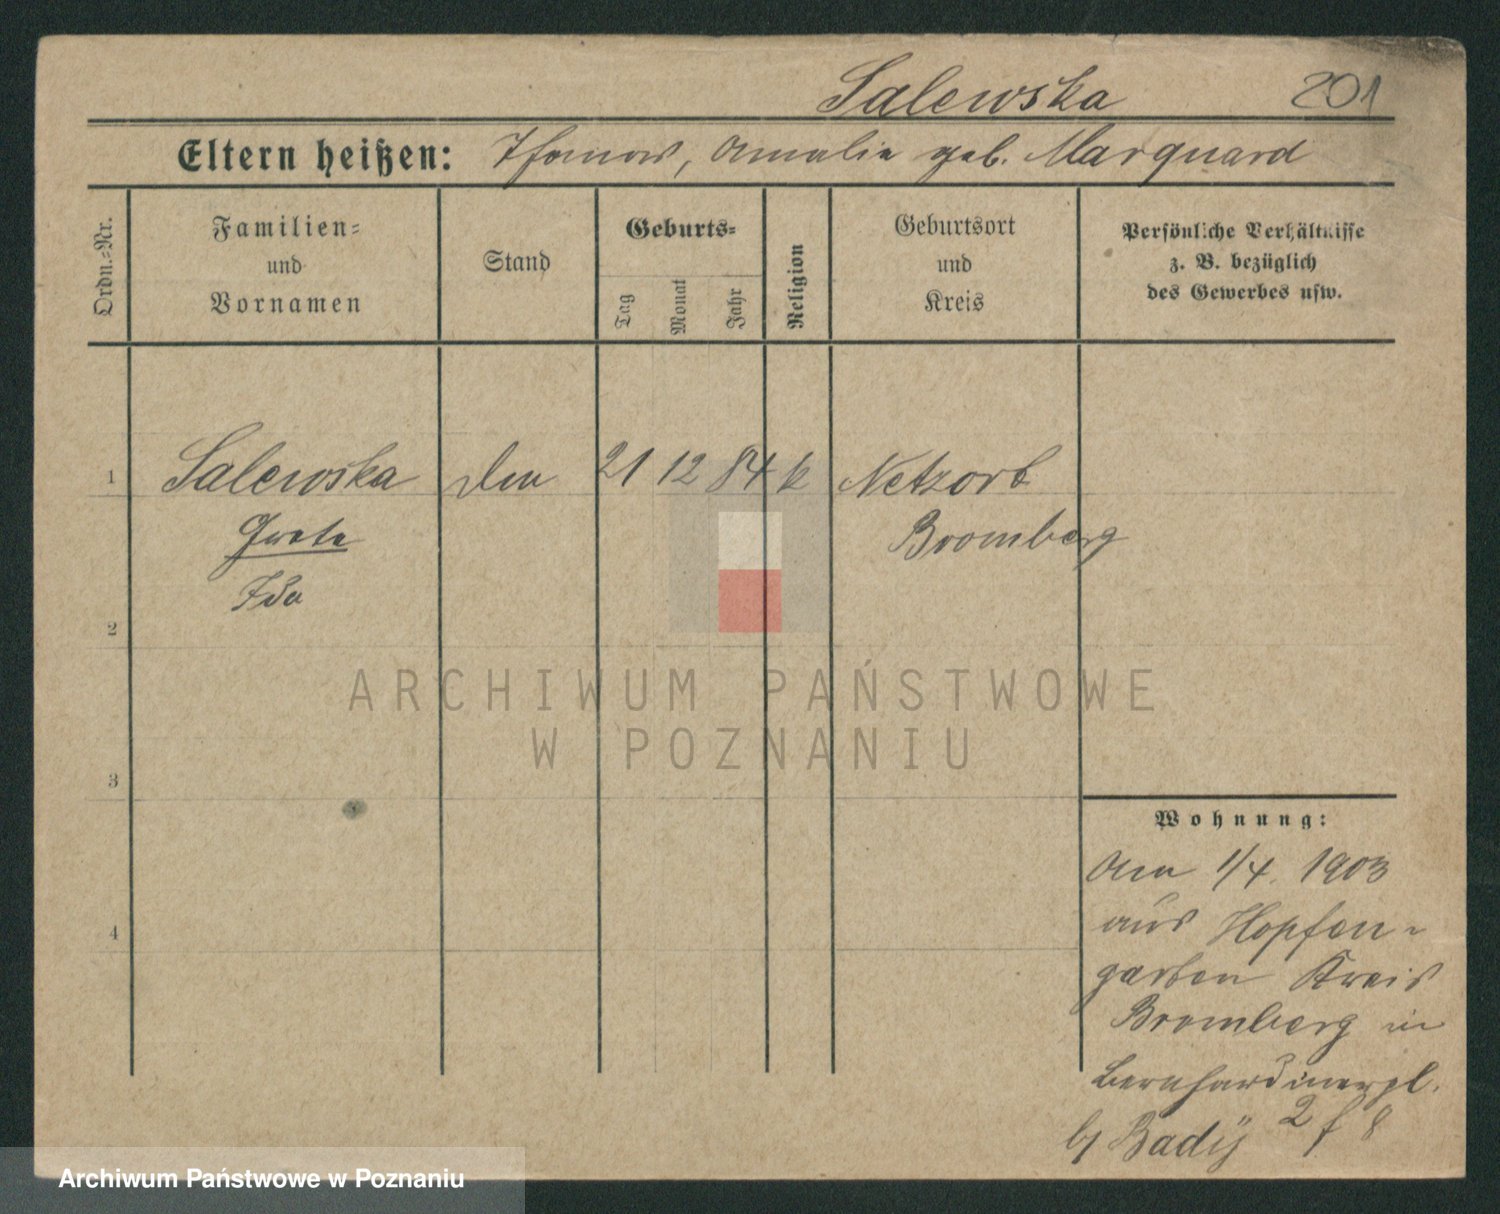 Salewska 201
Eltern heißen: Amalie geb. Marquard
Ordn.-Nr.
Familien-
und
Vornamen
Stand
Geburts-
Tag
Monat
Jahr
Religion
Geburtsort
und
Kreis
Persönliche Verhältnisse
z. B. bezüglich
des Gewerbes usw.
1 Salewska 21 12 84 k Netzort
Grete Bromberg
Ida
2
ARCHIWUM PAŃSTWOWE
W POZNANIU
3
4
Wohnung:
Am 1/4. 1903
aus Hopfen-
garten Kreis
Bromberg in
Bernhardinerpl.
Archiwum Państwowe w Poznaniu